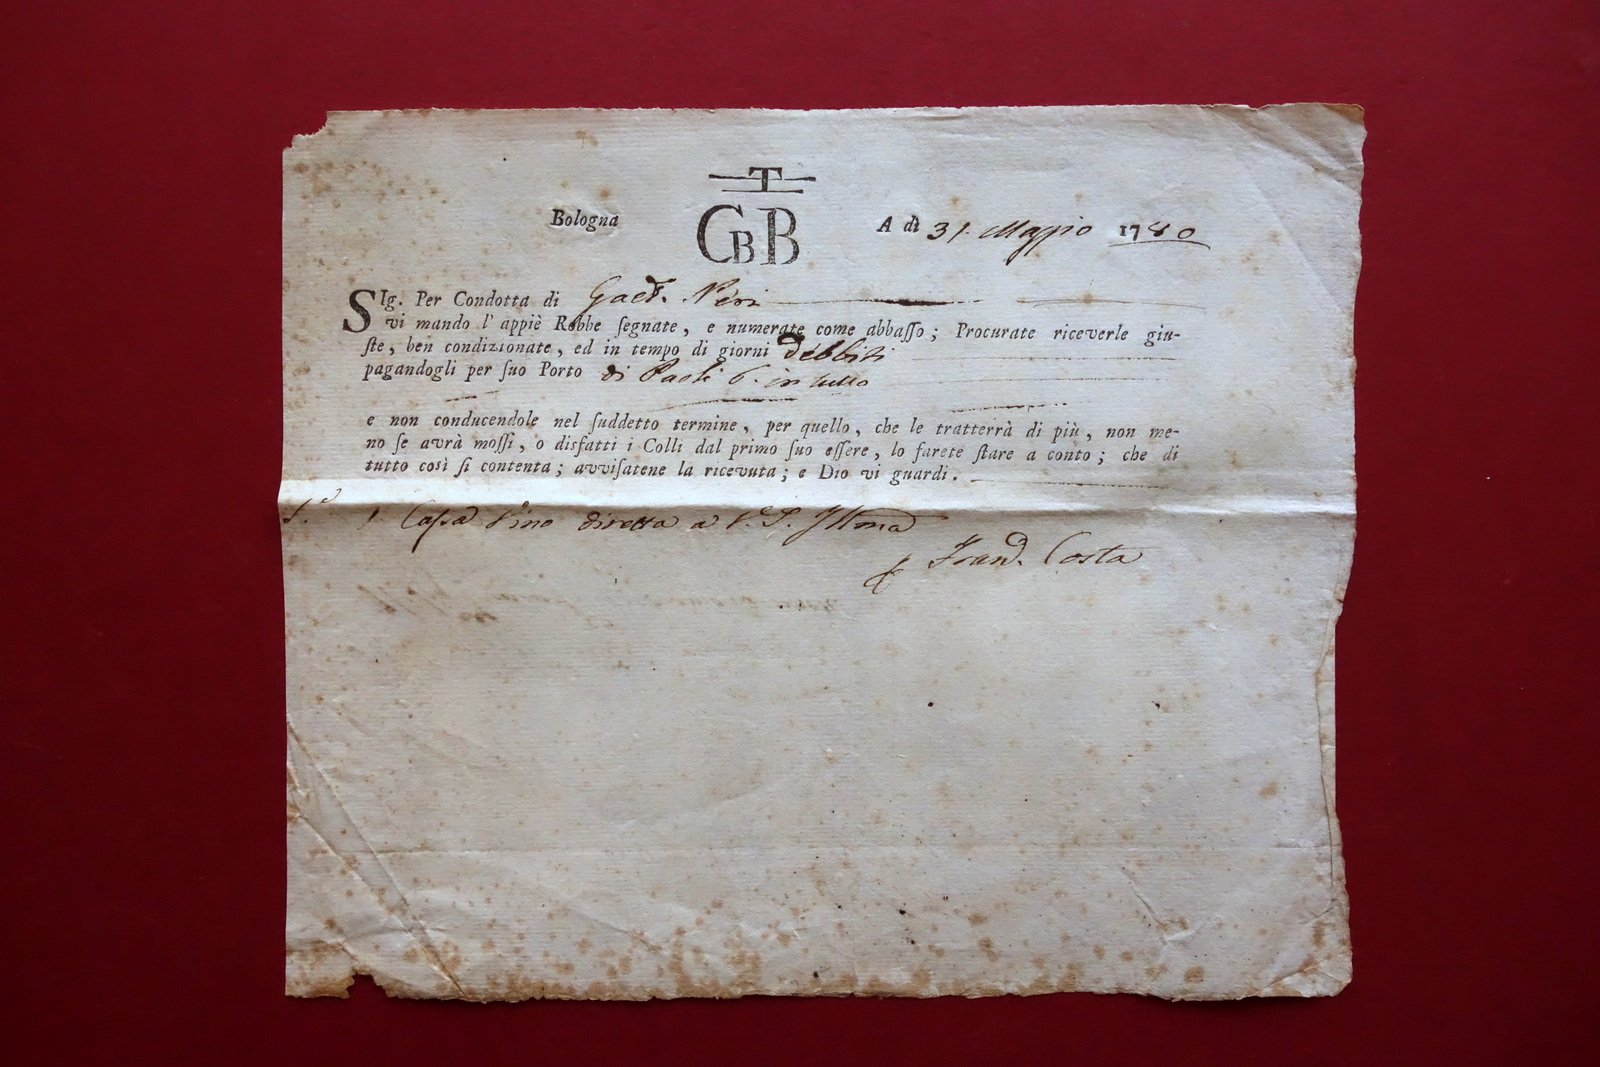 T
Bologna GBB A dì 31. Maggio 1780
SIg. Per Condotta di Gaet. Neri
vi mando l' appiè Robbe ſegnate, e numerate come abbaſſo; Procurate riceverle giu-
ſte, ben condizionate, ed in tempo di giorni debbiti
pagandogli per ſuo Porto di Paoli 6. in tutto
e non conducendole nel ſuddetto termine, per quello, che le tratterrà di più, non me-
no ſe avrà moſſi, o disfatti i Colli dal primo ſuo eſſere, lo farete ſtare a conto; che di
tutto così ſi contenta; avviſatene la ricevuta; e Dio vi guardi.
1 Caſsa Vino diretta a V. S. Ill
Fran. Costa